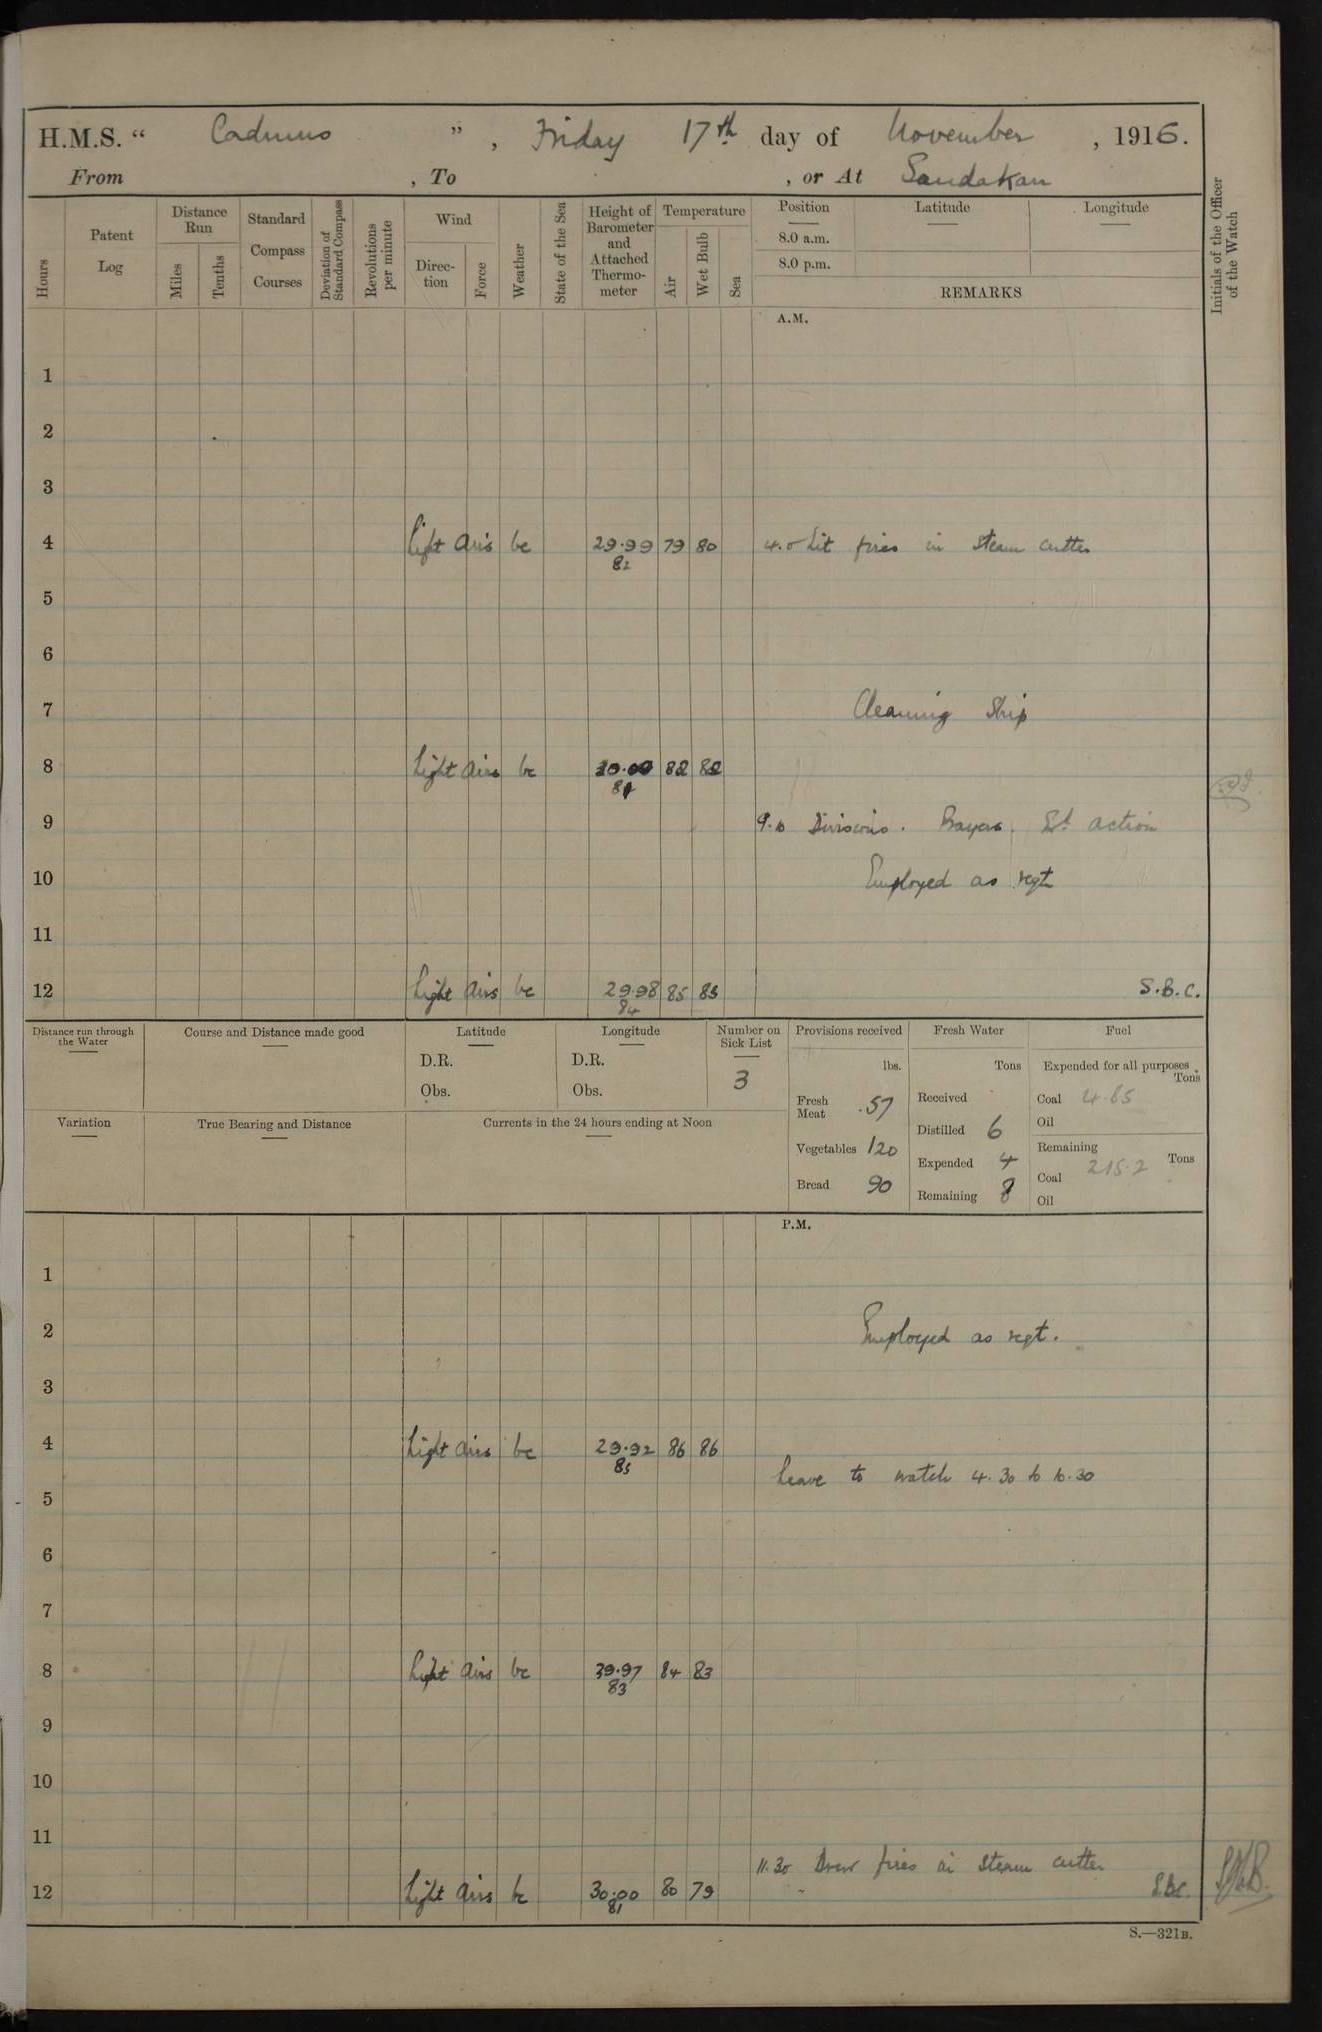 H.M.S. “ Cadmus ” , Friday 17th day of November , 1916.
From , To , or At Sandakan
Hours
Patent Log
Distance Run
Miles
Tenths
Standard Compass Courses
Deviation of Standard Compass
Revolutions per minute
Wind
Direction
Force
Weather
State of the Sea
Height of Barometer and Attached Thermometer
Temperature
Air
Wet Bulb
Sea
Position
Latitude
Longitude
8.0 a.m.
8.0 p.m.
REMARKS
Initials of the Officer of the Watch
A.M.
1
2
3
4 Light airs bc 29.99 79 80 4.0 Lit fires in steam cutter
82
5
6
7 Cleaning Ship
8 Light airs bc 30.00 82 82
9 Divisions. Prayers. action
10 Employed as reqt
11
12 Light airs bc 29.98 85 85 S.B.C.
84
Distance run through the Water
Course and Distance made good
Latitude
D.R.
Obs.
Longitude
D.R.
Obs.
Number on Sick List
3
Variation
True Bearing and Distance
Currents in the 24 hours ending at Noon
Provisions received
lbs.
Fresh Meat 57
Vegetables 120
Bread 90
Fresh Water
Tons
Received
Distilled 6
Expended 4
Remaining 8
Fuel
Expended for all purposes
Tons
Coal 4.85
Oil
Remaining
Tons
Coal 215.2
Oil
P.M.
1
2 Employed as reqt.
3
4 Light airs bc 29.92 86 86
85
Leave to watch 4.30 to 10.30
5
6
7
8 Light airs bc 39.97 84 83
83
9
10
11
11.30 Drew fires in steam cutter
12 Light airs bc 30.00 80 79 S.B.C.
81
S.—321B.